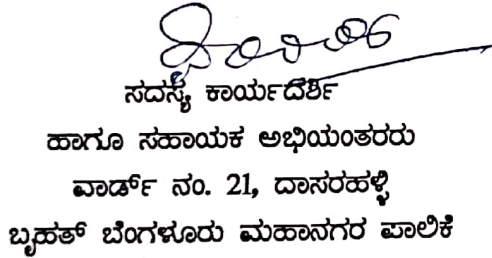 ಸದಸ್ಯ ಕಾರ್ಯದರ್ಶಿ
ಹಾಗೂ ಸಹಾಯಕ ಅಭಿಯಂತರರು
ವಾರ್ಡ್ ನಂ. 21, ದಾಸರಹಳ್ಳಿ
ಬೃಹತ್ ಬೆಂಗಳೂರು ಮಹಾನಗರ ಪಾಲಿಕೆ